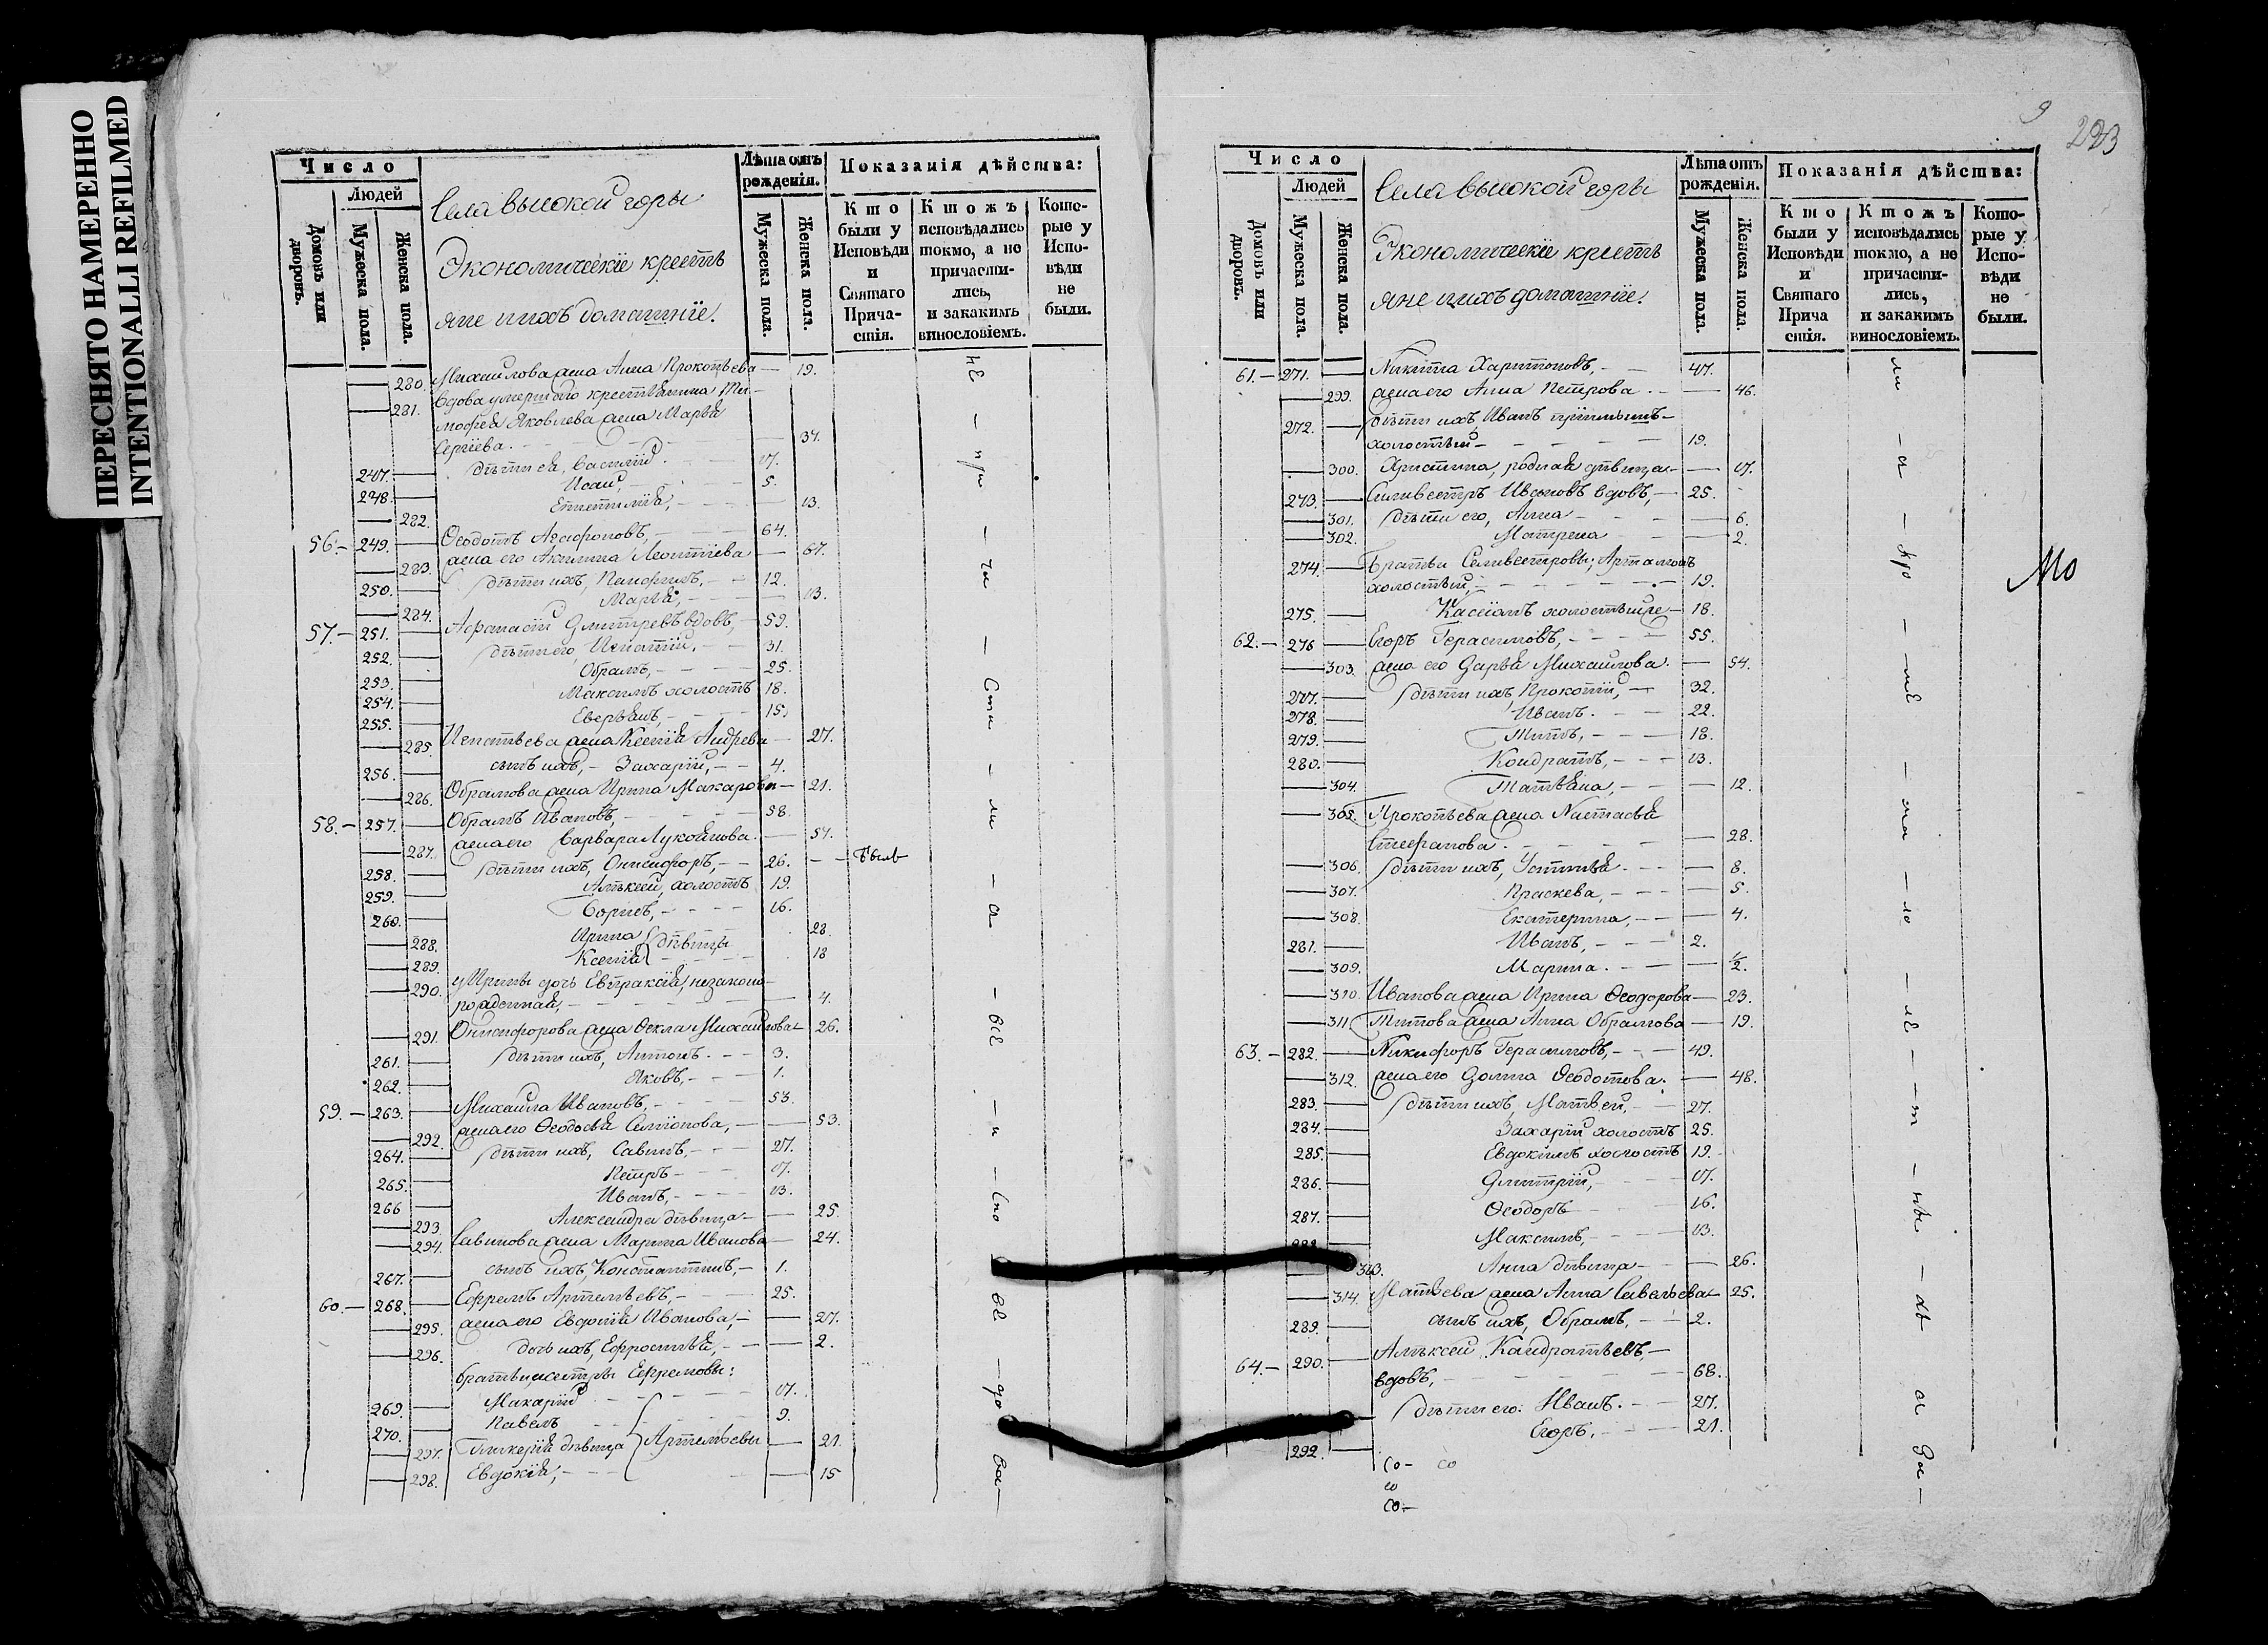 ПЕРЕСНЯТО НАМЕРЕННО
INTENTIONALLI REFILMED
Число
Людей
Домовъ или дворовъ.
Мужеска пола.
Женска пола.
Села высокой горы
Экономическіе кресть
яне и ихъ домашніе.
Лѣта отъ рожденія.
Мужеска пола.
Женска пола.
Показанія дѣйства:
Кто были у Исповѣди и Святаго Причастія.
Ктожъ исповѣдались токмо, а не причастились, и закакимъ винословіемъ.
Которые у Исповѣди не были.
280. Михаилова жена Анна Прокопьева — 19.
281. Вдова умершаго крестьянина Ти-
мофея Яковлева жена Марья
Сергіева. 37.
247. дѣти ея, Василій. 17.
248. Исаи, 5.
282. 13.
56. — 249. Ѳеодотъ 64.
283. жена его Акилина Леонтіева — 67.
250. дѣти ихъ, 12.
284. Марья, 13.
57. — 251. Афанасій Дмитревъ вдовъ, 59.
252. дѣти его, Игнатій, 31.
253. Обрамъ, 25.
254. Максимъ холостъ 18.
255. 15.
285. Игнатьева жена Ксенія Андрева — 27.
256. сынъ ихъ, — Захарій, 4.
286. Обрамова жена Ирина Макарова — 21.
58. — 257. Обрамъ Ивановъ, 58.
287. жена его Варвара Лукоянова. 57.
258. дѣти ихъ, Онисифоръ, 26. — —
259. Алѣксѣй, холостъ 19.
260. Борисъ, 16.
288. Ирина 28.
289. Ксенія дѣвицы 18
290. у Ирины дочь Евпраксія, незаконо-
рожденная, 4.
291. Онисифорова жена Ѳекла Михаилова 26.
261. дѣти ихъ, Антонъ. 3.
262. Яковъ, 1.
59. — 263. Михаила Ивановъ, 53.
292. жена его Ѳеодосья Семіонова, 53.
264. дѣти ихъ, Савинъ, 27.
265. Петръ 17.
266 Иванъ, 13.
293. Александра дѣвица 25.
294. Савинова жена Марина Иванова 24.
267. сынъ ихъ, Константинъ, 1.
60. — 268. Ефремъ Артемьевъ, 25.
295. жена его Евдокія Иванова, 27.
296. дочь ихъ, Ефросинья, 2.
братья и сестры Ефремовы:
269. Макарій 17.
270. Павелъ 9.
297. Гликерія дѣвица Артемьевы 21.
298. Евдокія, 15
не — при — ча — сти — ли — а — — и — — —
9
223
Число
Людей
Домовъ или дворовъ.
Мужеска пола.
Женска пола.
Села высокой горы
Экономическіе кресть
яне и ихъ домашніе.
Лѣта отъ рожденія.
Мужеска пола.
Женска пола.
Показанія дѣйства:
Кто были у Исповѣди и Святаго Причастія.
Ктожъ исповѣдались токмо, а не причастились, и закакимъ винословіемъ.
Которые у Исповѣди не были.
61. — 271. Никита Харитоновъ, 47.
299. жена его Анна Петрова. 46.
272. дѣти ихъ, Иванъ
холостый 19.
300. Христина, родная дѣвица 17.
273. Силивестръ Ивановъ вдовъ, 25.
301. дѣти его, Анна 6.
302. Матрена 2.
274. Братья Селивестровы; Артамонъ
холостый, 19.
275. Касіанъ холостъ же 18.
62. — 276 Егоръ Герасимовъ, 55.
303. жена его Дарья Михаилова. 54.
277. дѣти ихъ, Прокопій, 32.
278. Иванъ. 22.
279. Титъ, 18.
280. Кондратъ, 13.
304. Татьяна, 12.
305. Прокопьева жена Настасья
Стефанова. 28.
306. дѣти ихъ, Устинья. 8.
307. Праскева, 5.
308. Екатерина, 4.
281. Иванъ, 2.
309. Марина. 1/2.
310. Иванова жена Ирина Ѳеодорова 23.
311 Титова жена Анна Обрамова 19.
63. — 282. Никифоръ Герасимовъ, 49.
312. жена его Домна Ѳеодотова. 48.
283. дѣти ихъ, Матвей, 27.
284. Захарій холостъ 25.
285. Евдокимъ холостъ 19.
286. Дмитрій, 17.
287. Ѳеодоръ 16.
288. Максимъ, 13.
313. Анна дѣвица 26.
314. Матвева жена Анна Савельева 25.
289. сынъ ихъ, Обрамъ, 2.
64. — 290. Алѣксѣй Кандратьевъ,
вдовъ, 68.
дѣти его. Иванъ. 27.
292. Егоръ, 21.
со — со
со
со —
мо